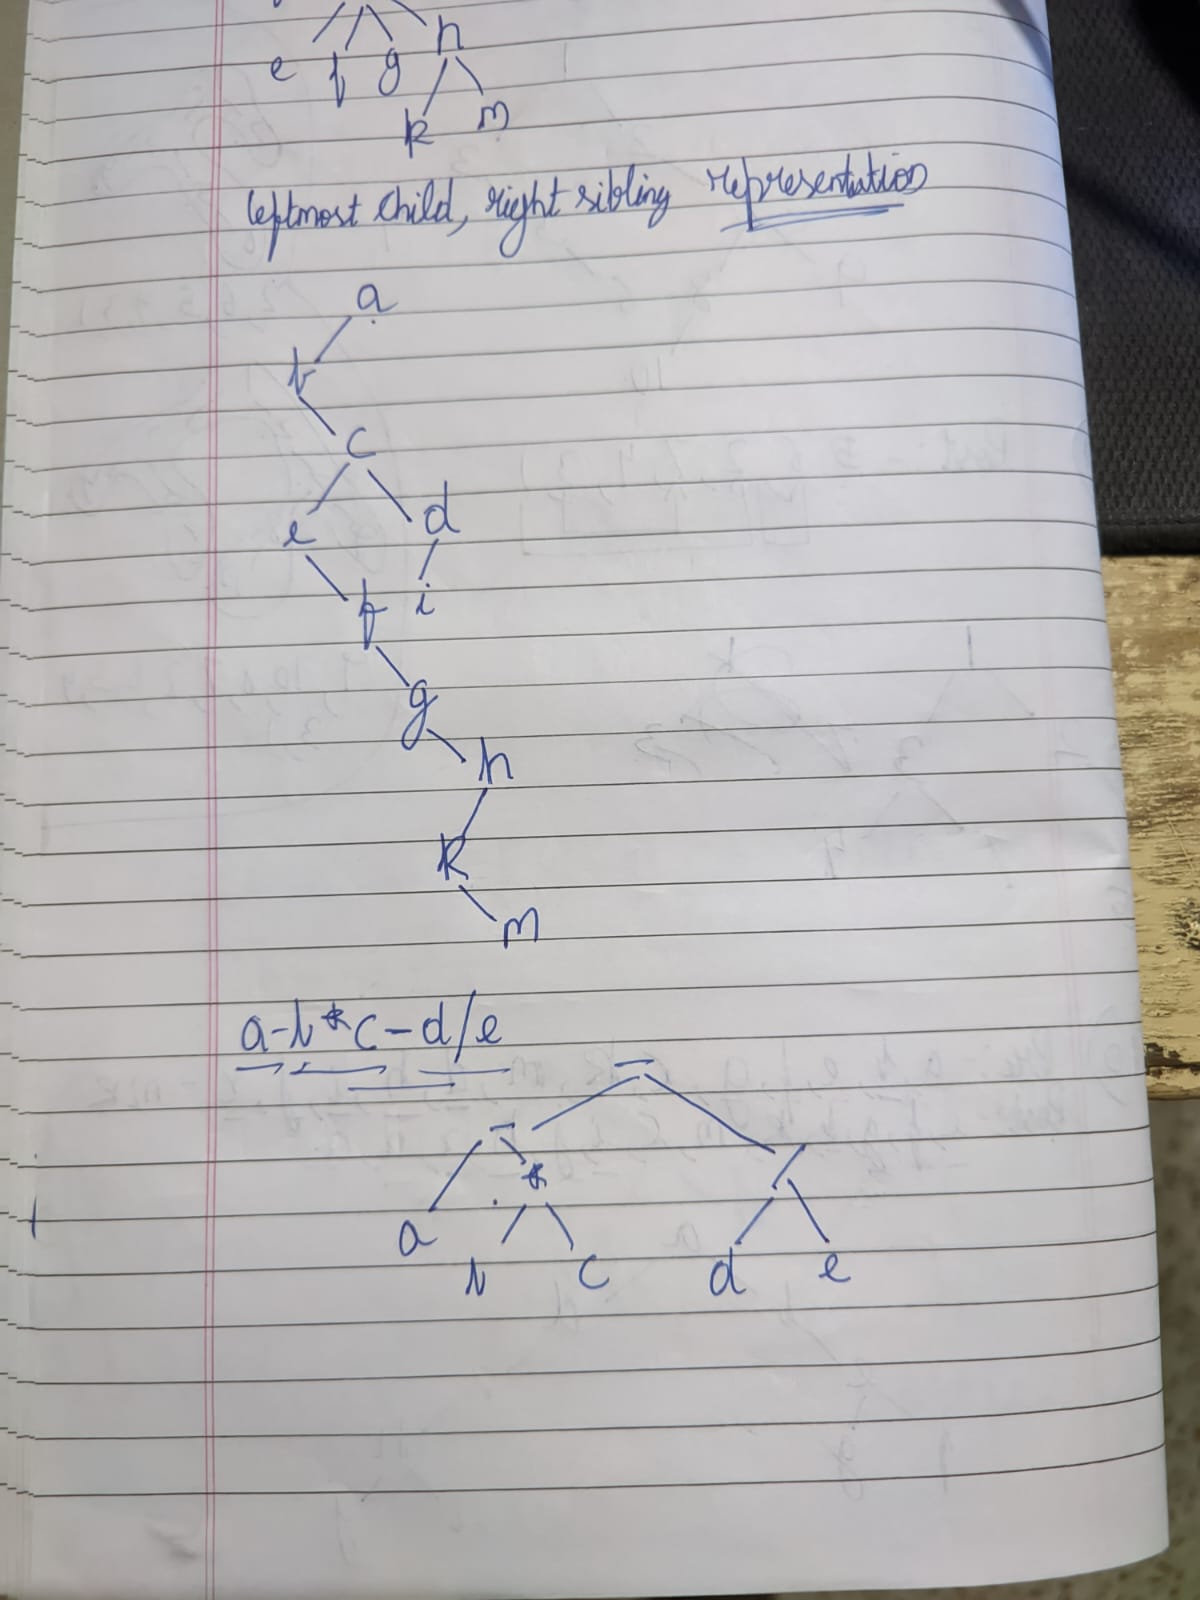 h
e f g
k m
leftmost child, right sibling representation
a
b
c
e d
f i
g
h
k
m
a-b*c-d/e
-
- /
*
a
b c d e